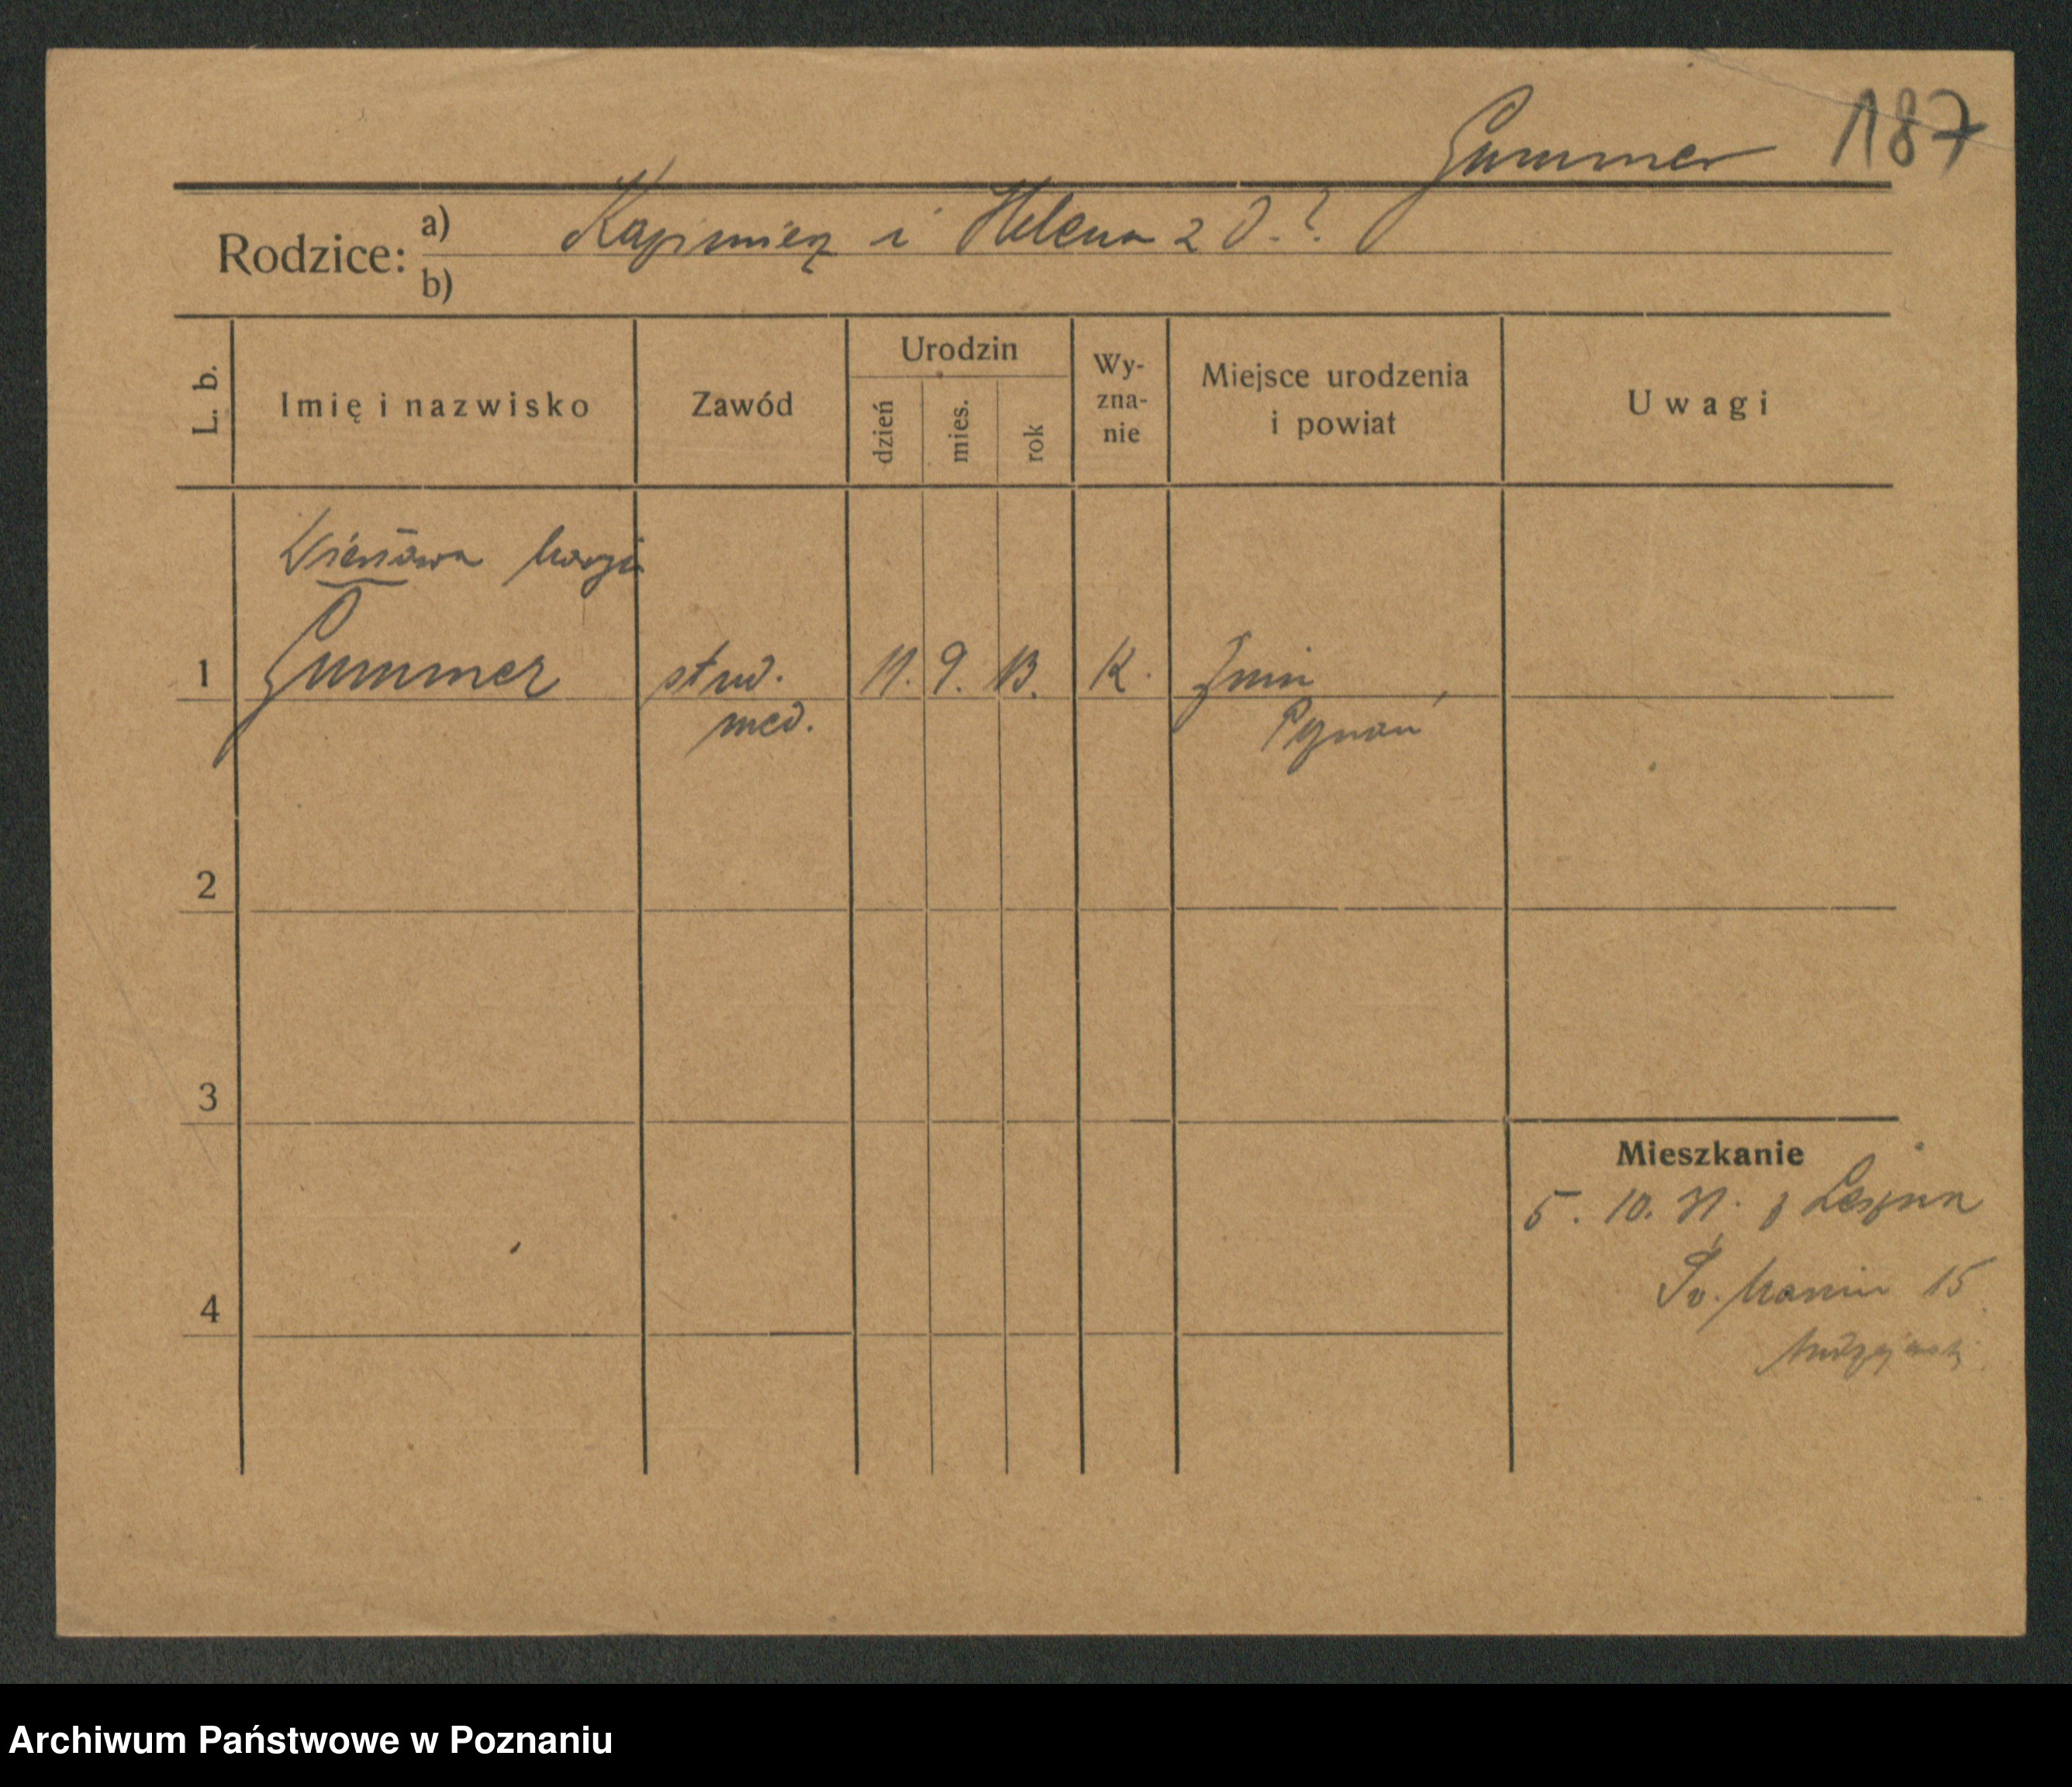 Gummer 187
Rodzice: a) Kazimierz i Helena z D.?
b)
L. b. Imię i nazwisko Zawód Urodzin dzień mies. rok Wy-zna-nie Miejsce urodzenia i powiat Uwagi
Wiesława Marja
1 Gummer stud. 11. 9. 13. K. Żnin
med. Poznań
2
3
4
Mieszkanie
5. 10. 31. z Leszna
Św. Marcin 15
Archiwum Państwowe w Poznaniu